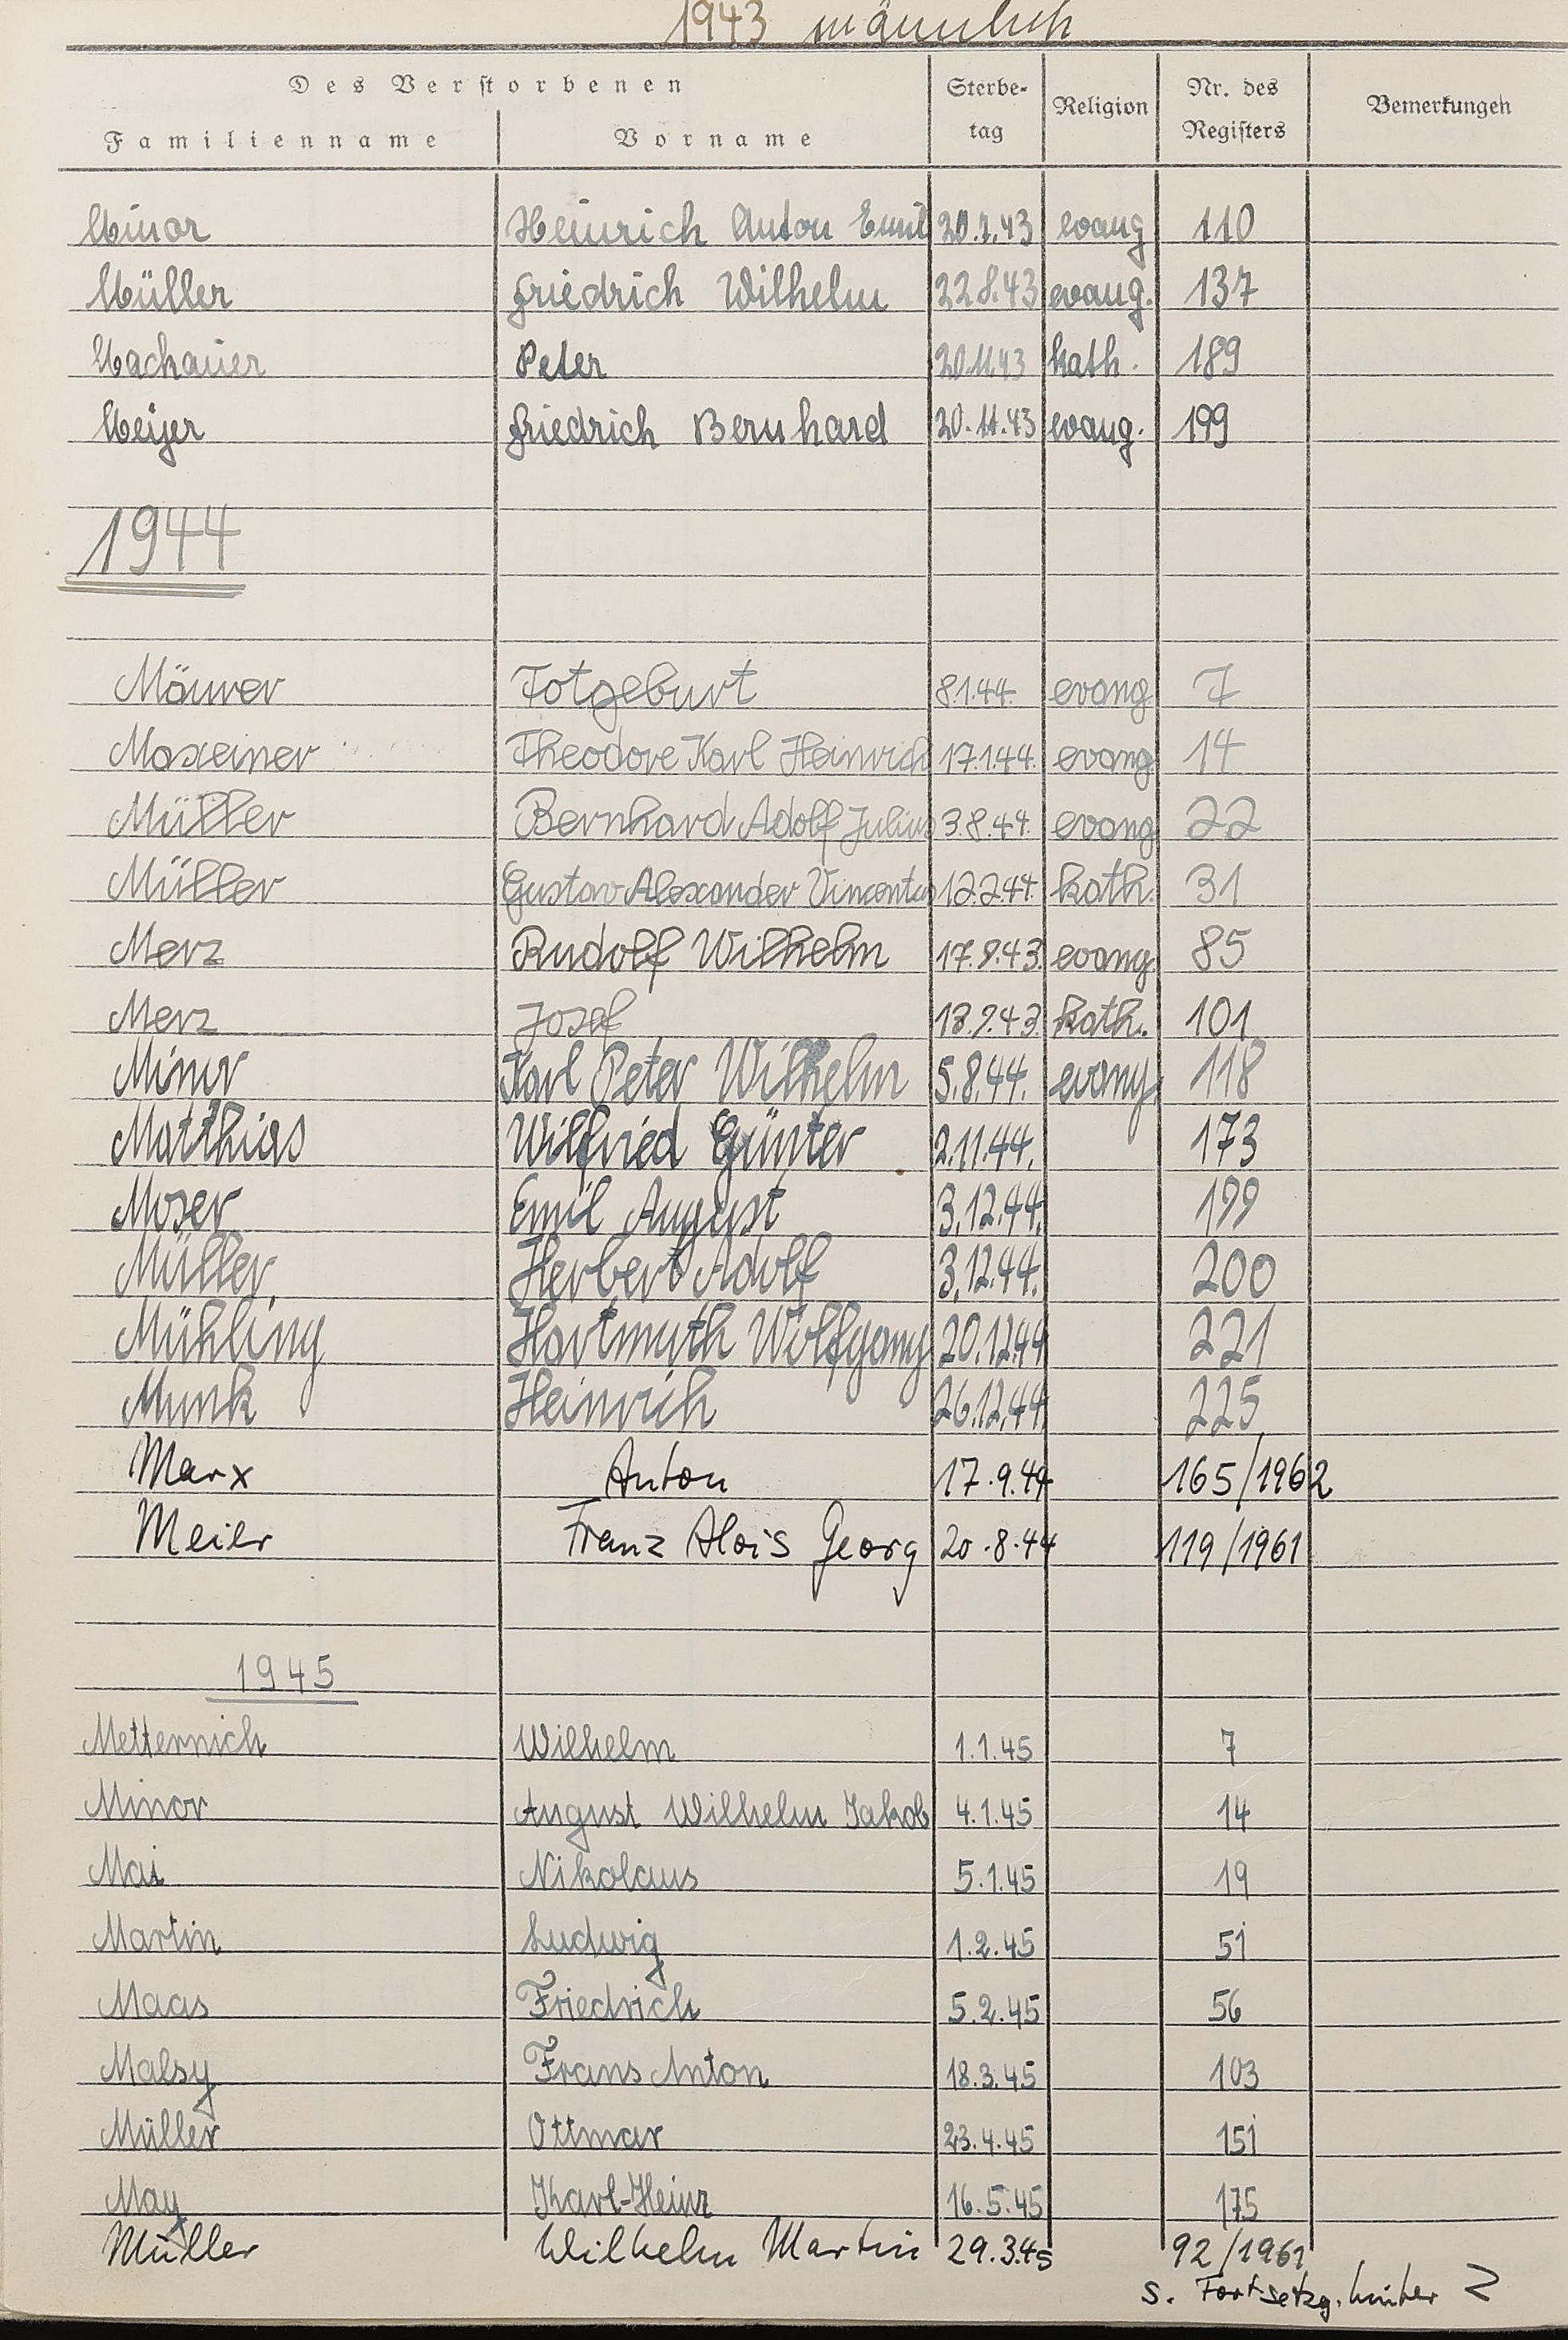 1943 männlich
Des Verstorbenen
Familienname Vorname Sterbe-tag Religion Nr. des Registers Bemerkungen
Minor Heinrich Anton Emil 20.7.43 evang 110
Müller Friedrich Wilhelm 22.8.43 evang. 137
Machauer Peter 20.11.43 kath. 189
Meijer Friedrich Bernhard 20.11.43 evang. 199
1944
Mäurer Totgeburt 8.1.44. evang 7
Maxeiner Theodore Karl Heinrich 17.1.44. evang 14
Müller Bernhard Adolf Julius 3.8.44. evang 22
Müller Gustav Alexander 12.2.44. kath. 31
Merz Rudolf Wilhelm 17.9.43. evang. 85
Merz Josef 18.9.43. kath. 101
Minor Karl Peter Wilhelm 5.8.44. evang. 118
Matthias Wilfried Günter 2.11.44. 173
Moser Emil August 3.12.44. 199
Müller Herbert Adolf 3.12.44. 200
Mühling Hartmuth Wolfgang 20.12.44 221
Munk Heinrich 26.12.44. 225
Marx Anton 17.9.44 165/1962
Meier Franz Alois Georg 20.8.44 119/1961
1945
Metternich Wilhelm 1.1.45 7
Minor August Wilhelm Jakob 4.1.45 14
Mai Nikolaus 5.1.45 19
Martin Ludwig 1.2.45 51
Maas Friedrich 5.2.45 56
Malsy Frans Anton 18.3.45 103
Müller Ottmar 23.4.45 151
May Karl-Heinz 16.5.45 175
Müller Wilhelm Martin 29.3.45 92/1961
s. Fortsetzg. hinter Z